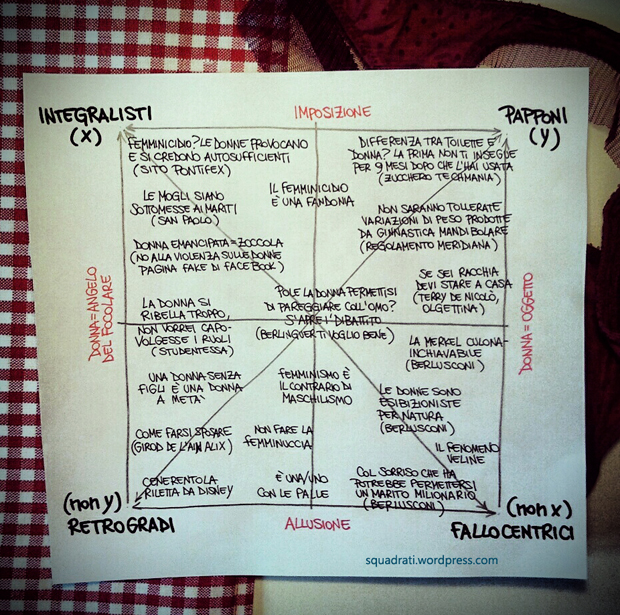 INTEGRALISTI
(X)
IMPOSIZIONE
PAPPONI
(Y)
FEMMINICIDIO? LE DONNE PROVOCANO
E SI CREDONO AUTOSUFFICIENTI
(SITO PONTIFEX)
DIFFERENZA TRA TOILETTE E
DONNA? LA PRIMA NON TI INSEGUE
PER 9 MESI DOPO CHE L'HAI USATA
(ZUCCHERO TECHMANIA)
LE MOGLI SIANO
SOTTOMESSE AI MARITI
(SAN PAOLO)
IL FEMMINICIDIO
È UNA FANDONIA
NON SARANNO TOLLERATE
VARIAZIONI DI PESO PRODOTTE
DA GINNASTICA MANDIBOLARE
(REGOLAMENTO MERIDIANA)
DONNA EMANCIPATA = ZOCCOLA
(NO ALLA VIOLENZA SULLE DONNE
PAGINA FAKE DI FACEBOOK)
SE SEI RACCHIA
DEVI STARE A CASA
(TERRY DE NICOLÒ,
OLGETTINA)
DONNA = ANGELO
DEL FOCOLARE
LA DONNA SI
RIBELLA TROPPO,
NON VORREI CAPO-
VOLGESSE I RUOLI
(STUDENTESSA)
POLE LA DONNA PERMETTISI
DI PAREGGIARE COLL'OMO?
S'APRE I' DIBATTITO
(BERLINGUER TI VOGLIO BENE)
DONNA = OGGETTO
LA MERKEL CULONA
INCHIAVABILE
(BERLUSCONI)
UNA DONNA SENZA
FIGLI È UNA DONNA
A METÀ
FEMMINISMO È
IL CONTRARIO DI
MASCHILISMO
LE DONNE SONO
ESIBIZIONISTE
PER NATURA
(BERLUSCONI)
COME FARSI SPOSARE
(GIROD DE L'AIN ALIX)
NON FARE LA
FEMMINUCCIA
IL FENOMENO
VELINE
CENERENTOLA
RILETTA DA DISNEY
È UNA/UNO
CON LE PALLE
COL SORRISO CHE HA
POTREBBE PERMETTERSI
UN MARITO MILIONARIO
(BERLUSCONI)
(non y)
RETROGRADI
ALLUSIONE
(non x)
FALLOCENTRICI
squadrati.wordpress.com